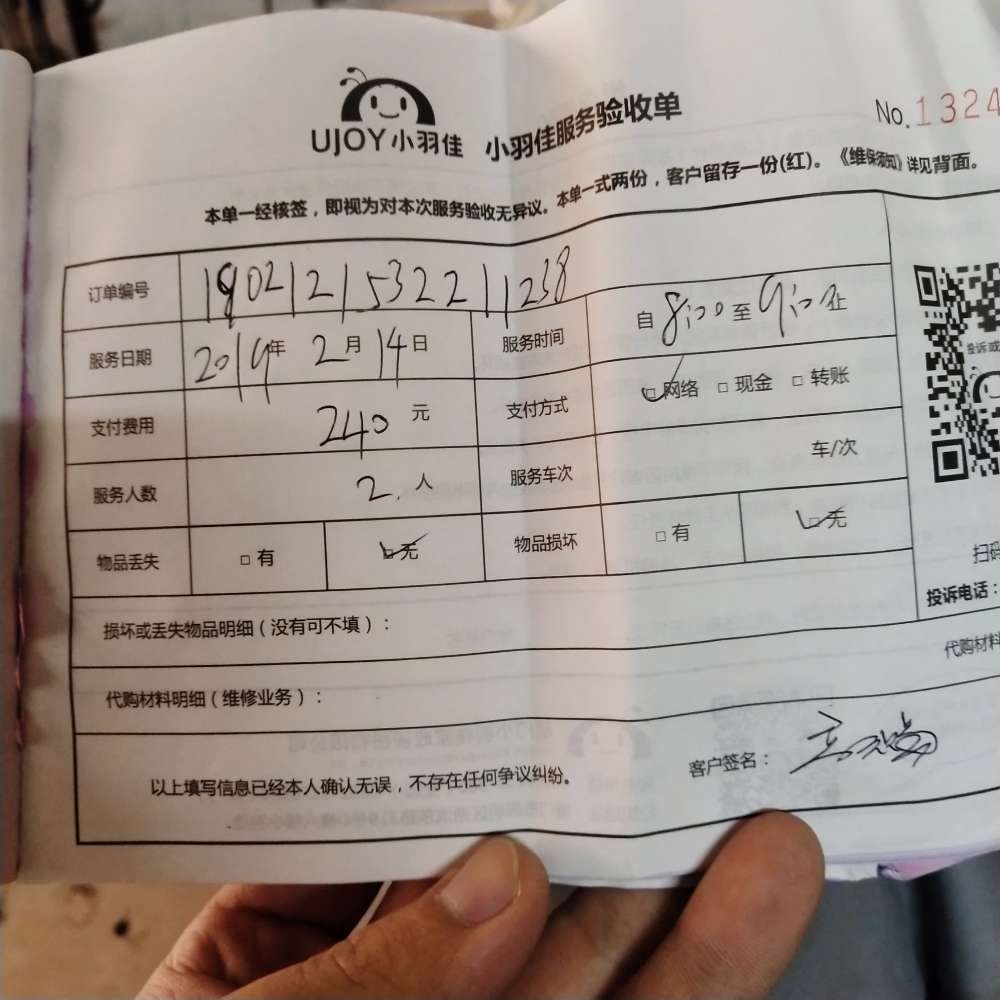 UJOY小羽佳 小羽佳服务验收单 No.1324
本单一经核签，即视为对本次服务验收无异议。本单一式两份，客户留存一份(红)。《维保须知》详见背面。
订单编号 1902121532211238
服务日期 2019年 2月 14日 服务时间 自 8:00 至 9:00 止
支付费用 240 元 支付方式 □网络 □现金 □转账
服务人数 2. 人 服务车次 车/次
物品丢失 □有 □无 物品损坏 □有 □无
投诉或
扫码
投诉电话：
损坏或丢失物品明细（没有可不填）：
代购材料明细（维修业务）： 代购材料
以上填写信息已经本人确认无误，不存在任何争议纠纷。 客户签名：